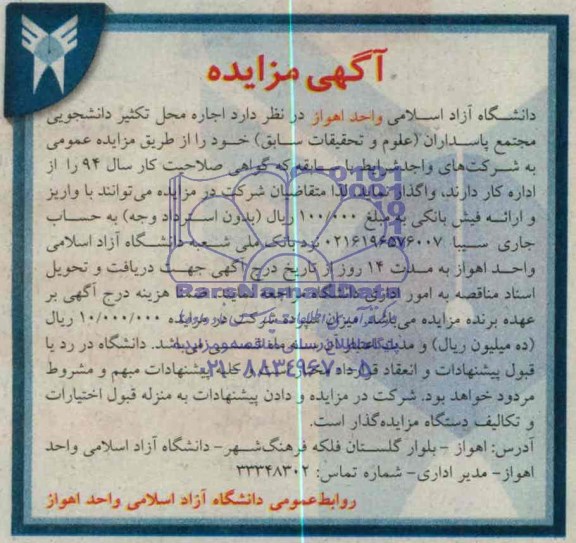 آگهی مزایده
دانشگاه آزاد اسلامی واحد اهواز در نظر دارد اجاره محل تکثیر دانشجویی
مجتمع پاسداران (علوم و تحقیقات سابق) خود را از طریق مزایده عمومی
به شرکت‌های واجدشرایط با سابقه که گواهی صلاحیت کار سال ۹۴ را از
اداره کار دارند، واگذار نماید. لذا متقاضیان شرکت در مزایده می‌توانند با واریز
و ارائه فیش بانکی به مبلغ ۱۰۰/۰۰۰ ریال (بدون استرداد وجه) به حساب
جاری سیبا ۰۲۱۶۱۹۶۵۷۶۰۰۷ نزد بانک ملی شعبه دانشگاه آزاد اسلامی
واحد اهواز به مدت ۱۴ روز از تاریخ درج آگهی جهت دریافت و تحویل
اسناد مناقصه به امور اداری دانشگاه مراجعه نمایند. ضمناً هزینه درج آگهی بر
عهده برنده مزایده می‌باشد. میزان سپرده شرکت در مزایده ۱۰/۰۰۰/۰۰۰ ریال
(ده میلیون ریال) و مدت اعتبار آن سه ماه می‌باشد. دانشگاه در رد یا
قبول پیشنهادات و انعقاد قرارداد مختار است و کلیه پیشنهادات مبهم و مشروط
مردود خواهد بود. شرکت در مزایده و دادن پیشنهادات به منزله قبول اختیارات
و تکالیف دستگاه مزایده‌گذار است.
آدرس: اهواز - بلوار گلستان فلکه فرهنگ‌شهر - دانشگاه آزاد اسلامی واحد
اهواز - مدیر اداری - شماره تماس: ۳۳۳۴۸۳۰۲
روابط‌عمومی دانشگاه آزاد اسلامی واحد اهواز
ParsNamadData
۰۲۱-۸۸۳۴۹۶۷۰-۵